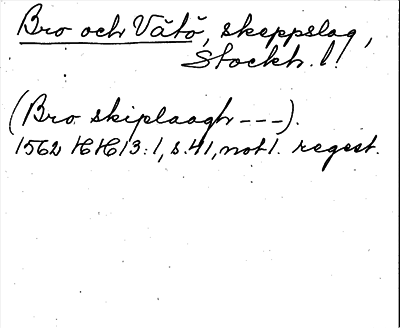 Bro och Vätö, skeppslag,
Stockh. l.
(Bro skiplaagh ---).
1562 HH 13:1, s. 41, not 1. regest.